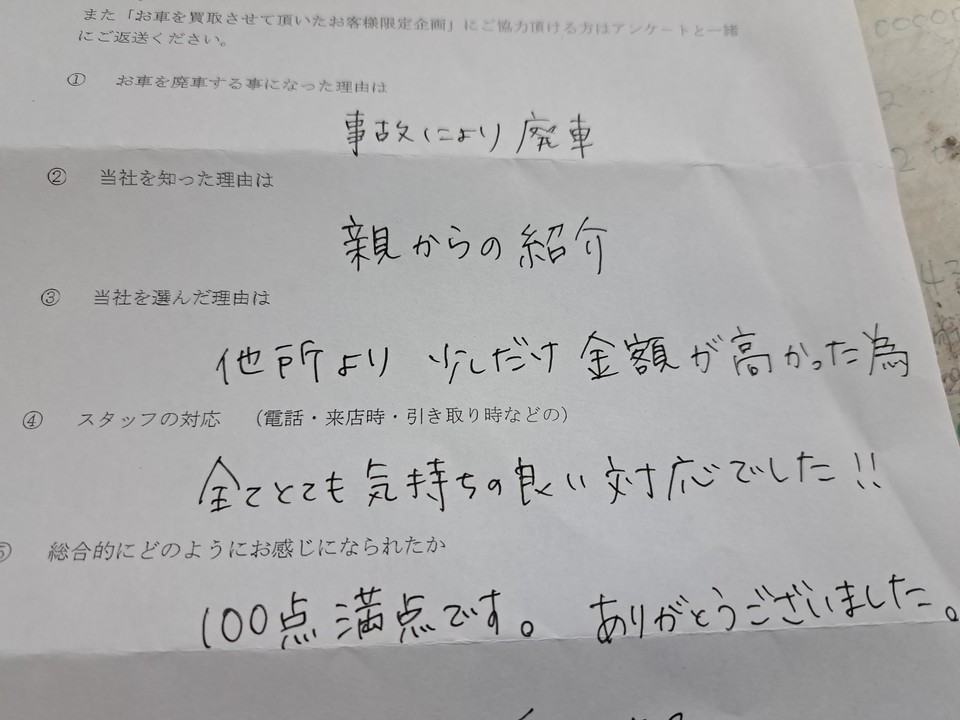 また「お車を買取させて頂いたお客様限定企画」にご協力頂ける方はアンケートと一緒
にご返送ください。
① お車を廃車する事になった理由は
事故により廃車
② 当社を知った理由は
親からの紹介
③ 当社を選んだ理由は
他所より 少しだけ 金額が高かった為
④ スタッフの対応 （電話・来店時・引き取り時などの）
全てとても気持ちの良い対応でした!!
⑤ 総合的にどのようにお感じになられたか
100点満点です。 ありがとうございました。